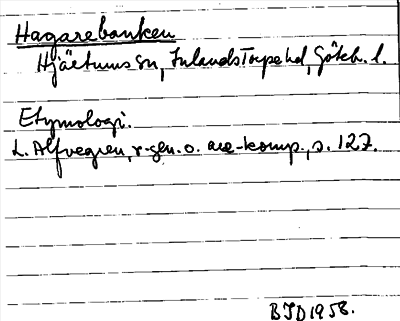 Hagarebanken
Hjärtums sn, Inlands Torpe hd, Göteb. l.
Etymologi.
L. Alfvegren, r-gen. o. are-komp., s. 127.
BJD 1958.